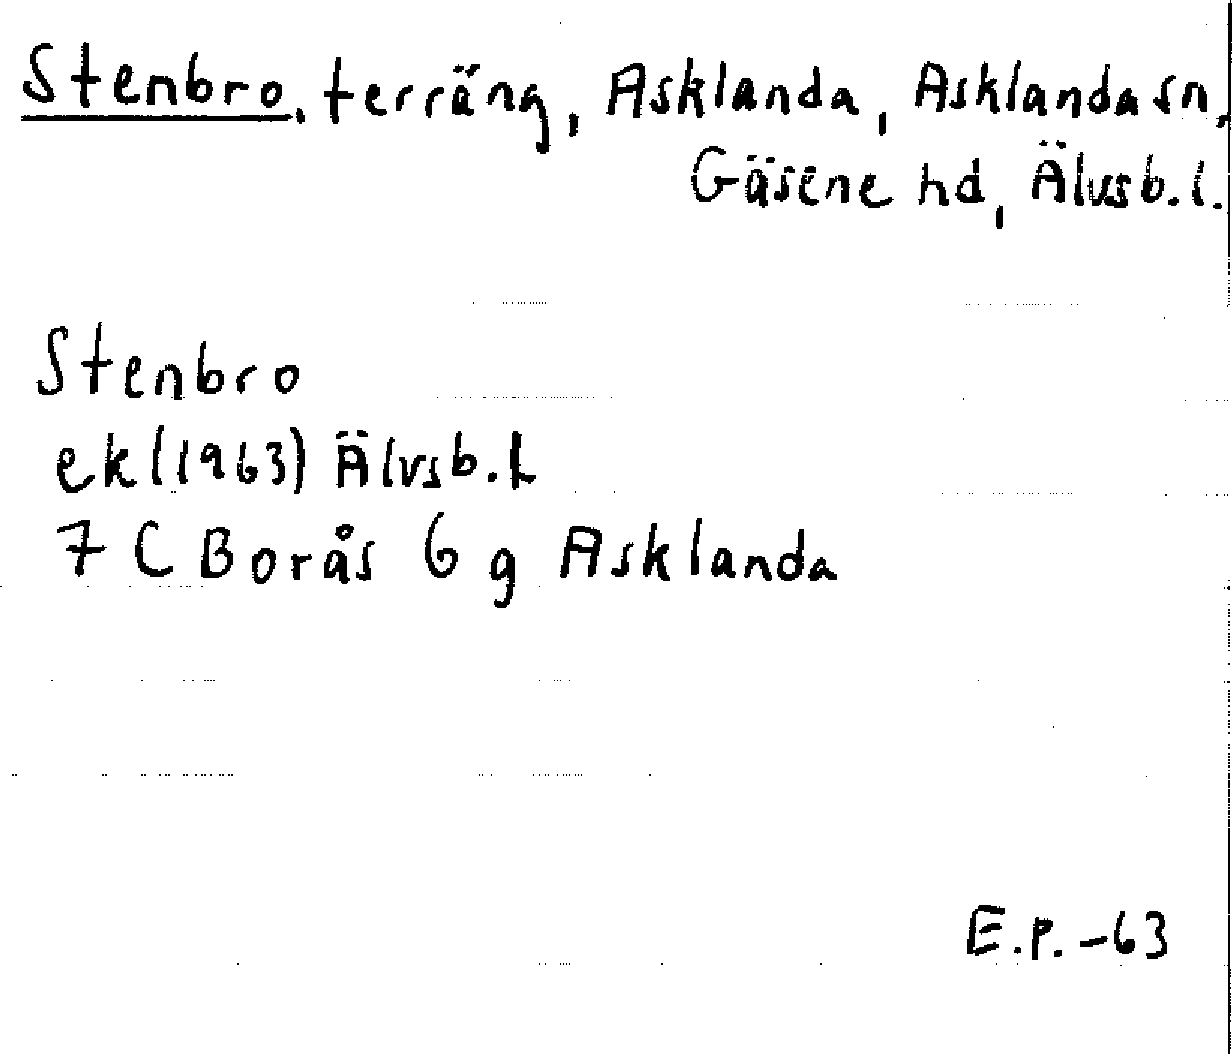 Stenbro, terräng, Asklanda, Asklanda sn,
Gäsene hd, Älvsb. l.
Stenbro
ek (1963) Älvsb. L
7 C Borås 6 g Asklanda
E.P. -63